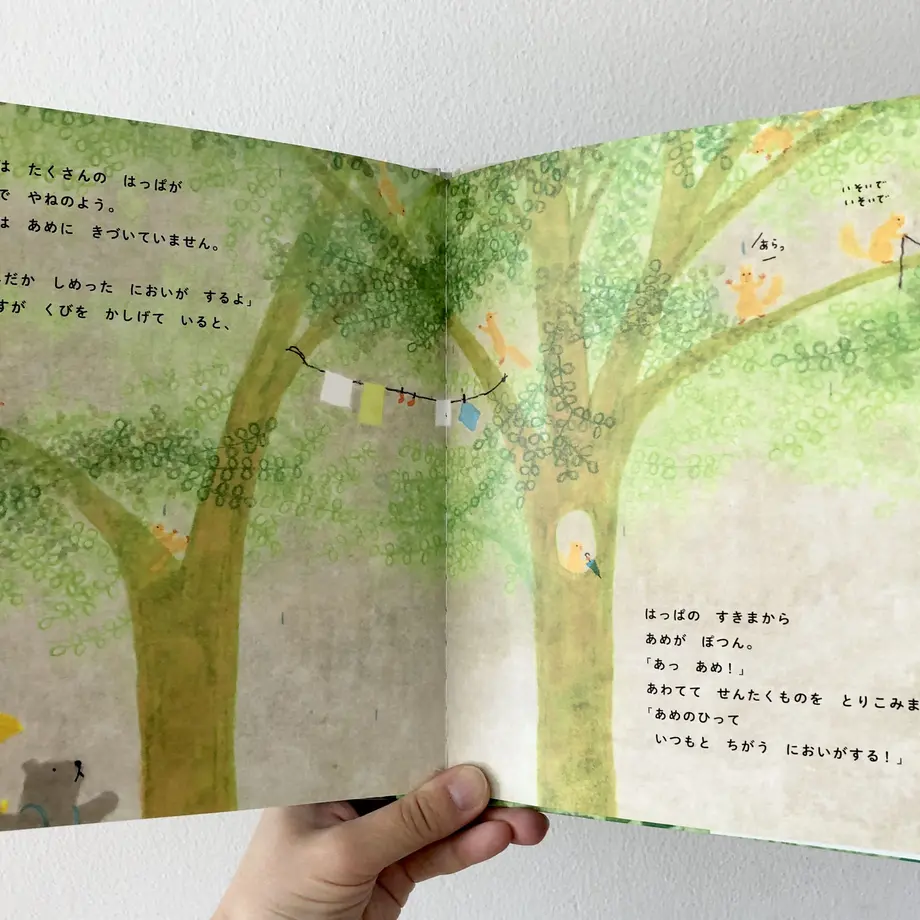 は たくさんの はっぱが
で やねのよう。
は あめに きづいていません。
だか しめった においが するよ」
すが くびを かしげて いると、
いそいで
いそいで
あらっ
はっぱの すきまから
あめが ぽつん。
「あっ あめ！」
あわてて せんたくものを とりこみま
「あめのひって
いつもと ちがう においがする！」